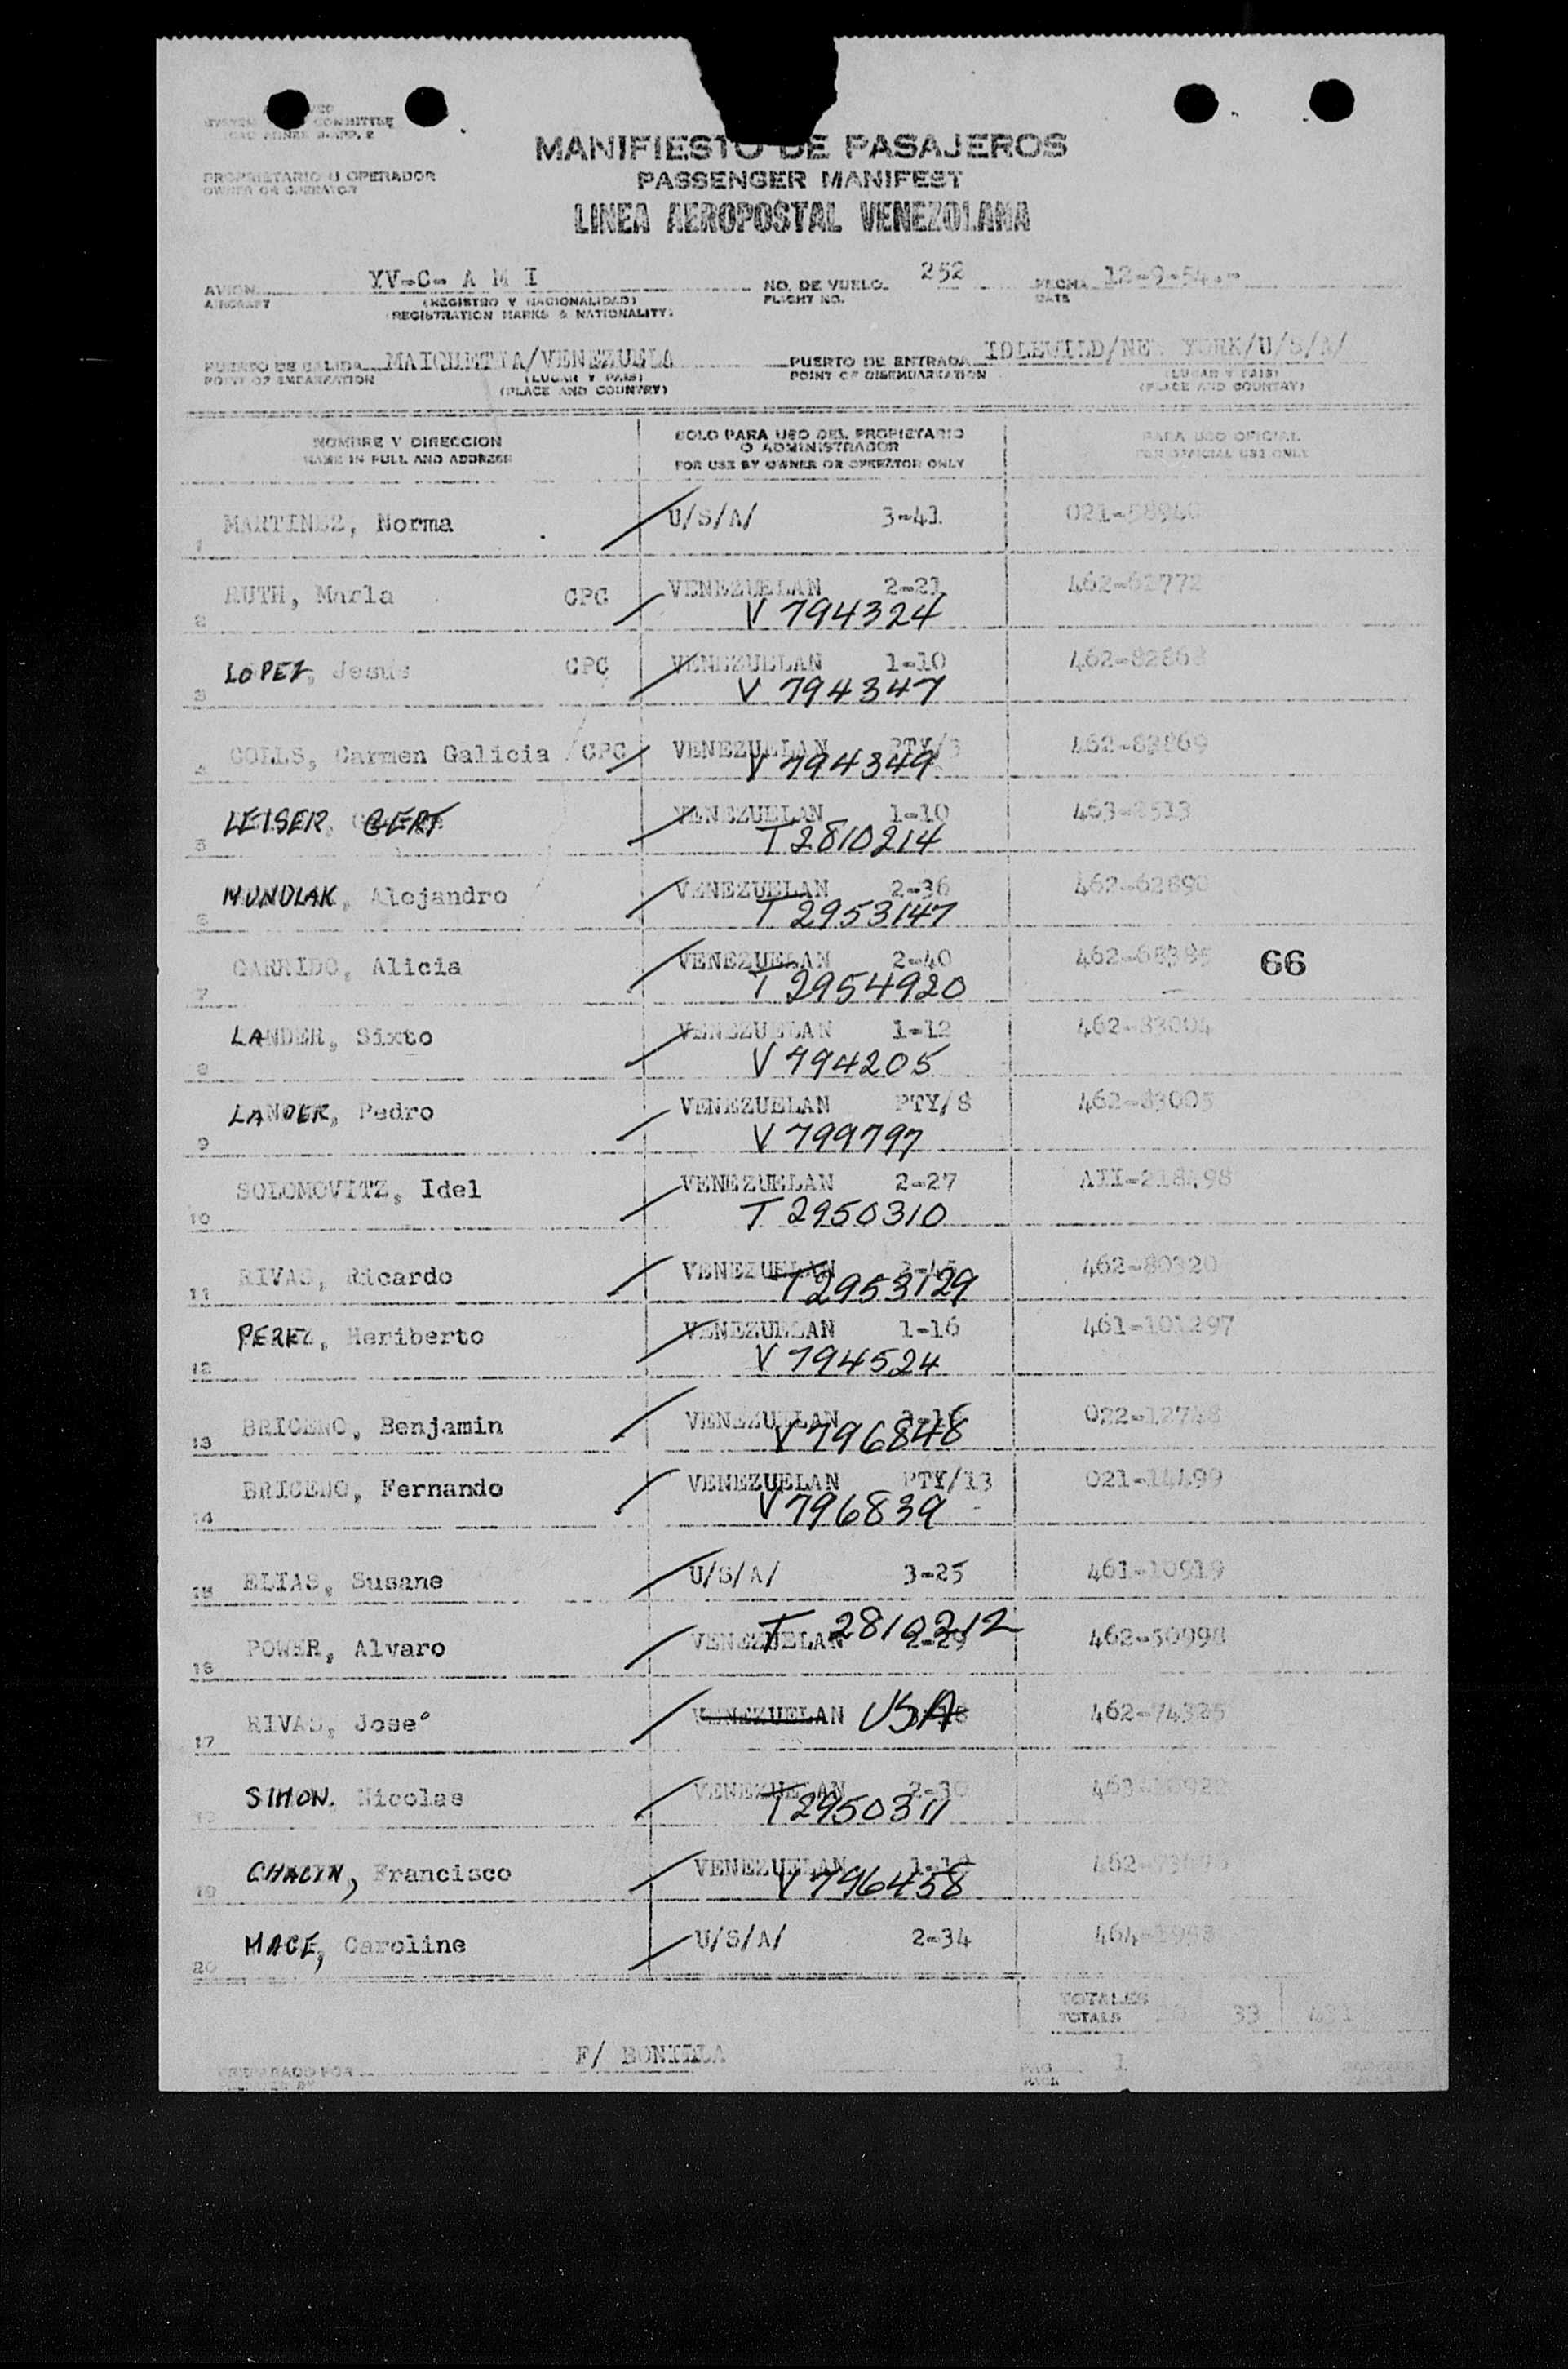 COMMITTEE
PROPRIETARIO U OPERADOR
OWNER OR OPERATOR
MANIFIESTO DE PASAJEROS
PASSENGER MANIFEST
LINEA AEROPOSTAL VENEZOLANA
AVION YV-C- A M I NO. DE VUELO 252 FECHA 12-9-54.-
AIRCRAFT (REGISTRO Y NACIONALIDAD) FLIGHT NO. DATE
(REGISTRATION MARKS & NATIONALITY)
PUERTO DE SALIDA MAIQUETIA/VENEZUELA PUERTO DE ENTRADA IDLEWILD/NEW YORK/U/S/A/
POINT OF EMBARKATION (LUGAR Y PAIS) POINT OF DISEMBARKATION (LUGAR Y PAIS)
(PLACE AND COUNTRY) (PLACE AND COUNTRY)
NOMBRE Y DIRECCION SOLO PARA USO DEL PROPIETARIO PARA USO OFICIAL
O ADMINISTRADOR
NAME IN FULL AND ADDRESS FOR USE BY OWNER OR OPERATOR ONLY FOR OFFICIAL USE ONLY
1 MARTINEZ, Norma U/S/A/ 3-41
2 RUTH, Marla CPC VENEZUELAN 2-21 462-62772
V 794324
3 LOPEZ, Jesus CPC VENEZUELAN 1-10 462-82868
V 794347
4 COLLS, Carmen Galicia /CPC VENEZUELAN PTY/3 462-82869
V 794349
5 LEISER, GERT VENEZUELAN 1-10
T 2810214
6 MUNDLAK, Alejandro VENEZUELAN 2-36
T 2953147
7 GARRIDO, Alicia VENEZUELAN 2-40 66
T 2954920
8 LANDER, Sixto VENEZUELAN 1-12 462-83004
V 794205
9 LANDER, Pedro VENEZUELAN PTY/8 462-83005
V 799797
10 SOLOMOVITZ, Idel VENEZUELAN 2-27 AII-218498
T 2950310
11 RIVAS, Ricardo VENEZUELAN 462-80320
T 2953129
12 PEREZ, Heriberto VENEZUELAN 1-16 461-101297
V 794524
13 BRICENO, Benjamin VENEZUELAN 022-12748
V 796848
14 BRICENO, Fernando VENEZUELAN PTY/13 021-14499
V 796839
15 ELIAS, Susane U/S/A/ 3-25 461-10919
T 2810212
16 POWER, Alvaro VENEZUELAN 2-29 462-50998
17 RIVAS, Jose° VENEZUELAN USA 462-74325
18 SIMON. Nicolas VENEZUELAN 2-30
T 2950311
19 CHACIN, Francisco VENEZUELAN
V 796458
20 MACE, Caroline U/S/A/ 2-34
TOTALES
TOTALS 33
F/ BONILLA
PREPARADO POR PAG. 1